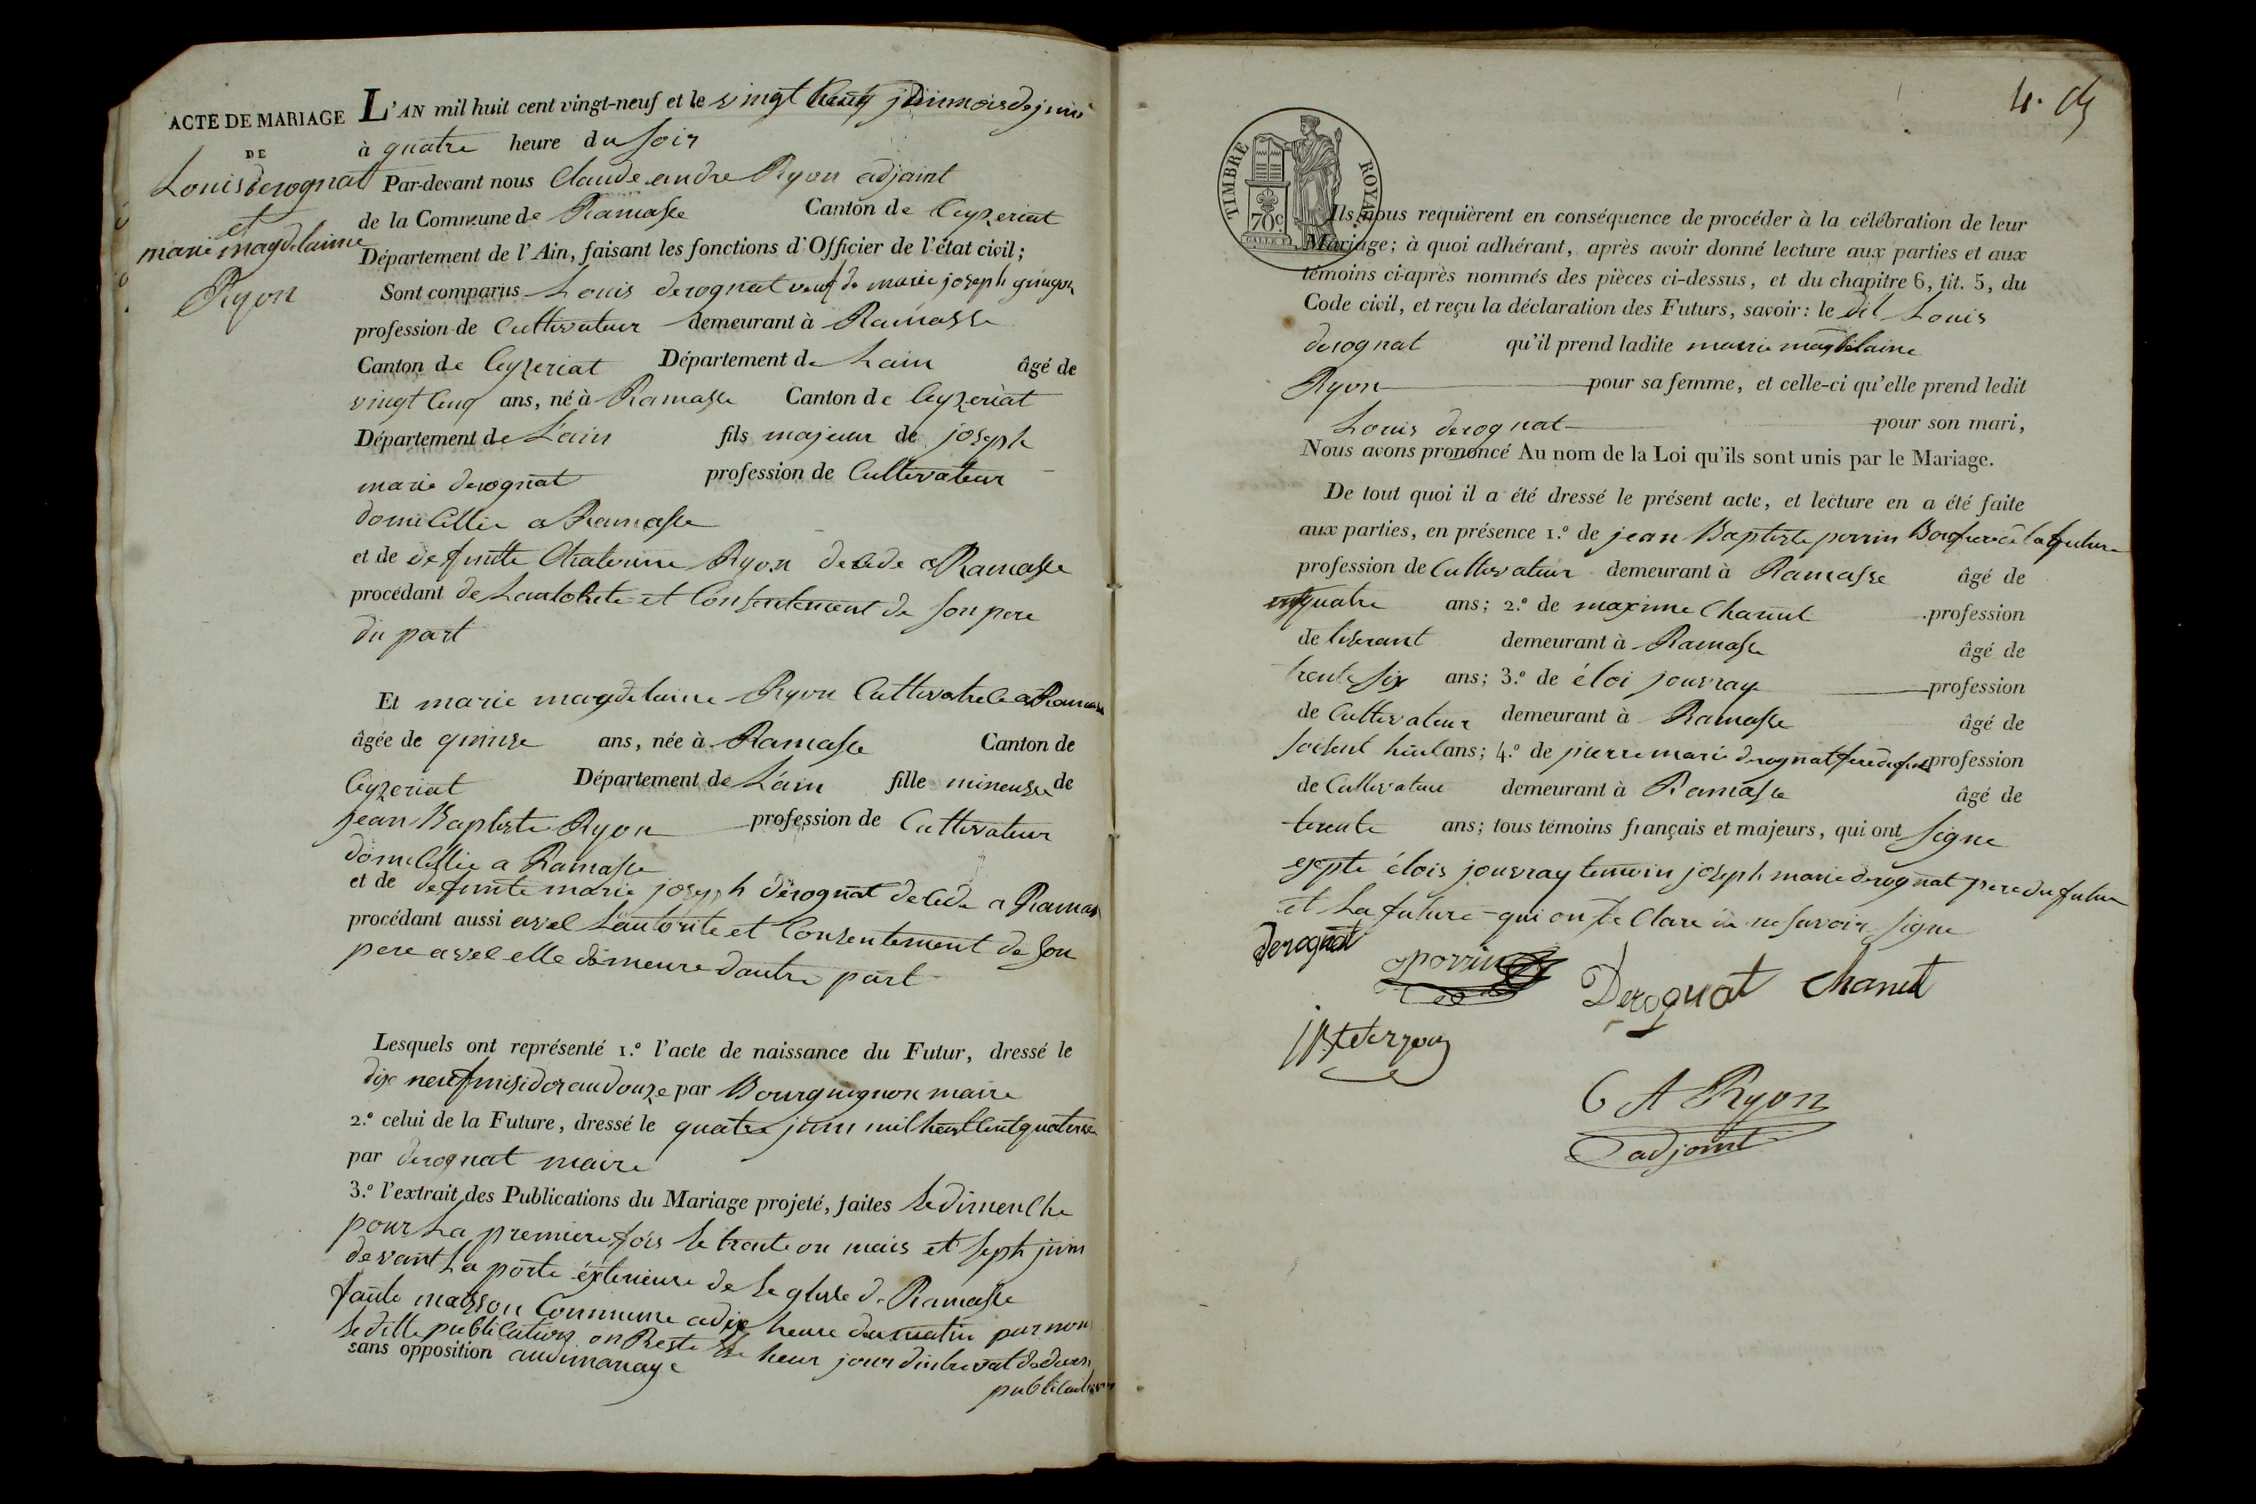 ACTE DE MARIAGE
DE
Louis derognat
et
marie magdelaine
Ryon
L'AN mil huit cent vingt-neuf et le vingt mois de juin
à quatre heure du soir
Par-devant nous Claude andre Ryon adjoint
de la Commune de Ramasse Canton de Ceyzeriat
Département de l'Ain, faisant les fonctions d'Officier de l'état civil;
Sont comparus Louis derognat veuf de marie joseph
profession de Cultivateur demeurant à Ramasse
Canton de Ceyzeriat Département de Lain âgé de
vingt Cinq ans, né à Ramasse Canton de Ceyzeriat
Département de L'ain fils majeur de joseph
marie derognat profession de Cultivateur
domicillie a Ramasse
et de defunte Ryon decede a Ramasse
procédant de Lautorite et Consentement de son pere
du part
Et marie magdelaine Ryon Cultivatrice a Ramasse
âgée de quinze ans, née à Ramasse Canton de
Ceyzeriat Département de L'ain fille mineure de
jean Baptiste Ryon profession de Cultivateur
domicillie a Ramasse
et de defunte marie joseph derognat decede a Ramasse
procédant aussi avec L'autorite et Consentement de son
pere avec elle demeure dautre part
Lesquels ont représenté 1.º l'acte de naissance du Futur, dressé le
dix neuf misidor an douze par Bourguignon maire
2.º celui de la Future, dressé le quatre juin mil huit cent quatorze
par derognat maire
3.º l'extrait des Publications du Mariage projeté, faites le dimenche
pour La premiere fois le trente on mais et sept juin
devant La porte exterieure de Leglise de Ramasse
faute maison Commune a dix heure du matin par nous
publication on Reste
sans opposition audi mariage heur jour dintervat de deux
publication
4.
TIMBRE ROYAL
70c
Ils nous requièrent en conséquence de procéder à la célébration de leur
Mariage; à quoi adhérant, après avoir donné lecture aux parties et aux
témoins ci-après nommés des pièces ci-dessus, et du chapitre 6, tit. 5, du
Code civil, et reçu la déclaration des Futurs, savoir: le dit Louis
derognat qu'il prend ladite marie magdelaine
Ryon pour sa femme, et celle-ci qu'elle prend ledit
Louis derognat pour son mari,
Nous avons prononcé Au nom de la Loi qu'ils sont unis par le Mariage.
De tout quoi il a été dressé le présent acte, et lecture en a été faite
aux parties, en présence 1.º de jean Baptiste perrin a la future
profession de Cultivateur demeurant à Ramasse âgé de
quatre ans; 2.º de maxime Chanut profession
de tiserant demeurant à Ramasse âgé de
trente six ans; 3.º de éloi jouvray profession
de Cultivateur demeurant à Ramasse âgé de
soisent huit ans; 4.º de pierre marie derognat profession
de Cultivateur demeurant à Ramasse âgé de
trente ans; tous témoins français et majeurs, qui ont signe
exepte élois jouvray temoin joseph marie derognat pere du futur
et La future qui on de Clare ne savoir signe
derognat
perrin
Derognat Chanut
C A Ryon
adjoint